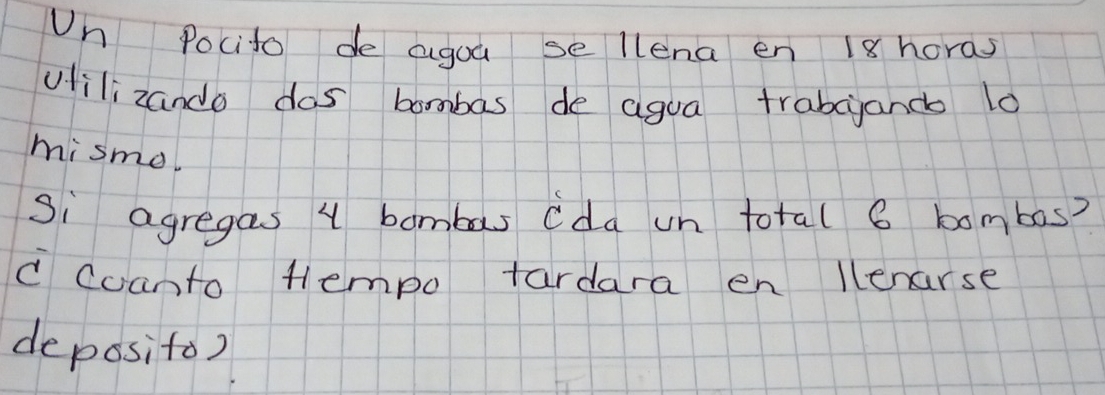 Un Pocito de agua se llena en 18 horas
utilizando dos bombas de agua trabajando lo
mismo.
Si agregas 4 bombas ¿da un total 6 bombas?
¿ Cuanto tiempo tardara en llenarse
deposito?